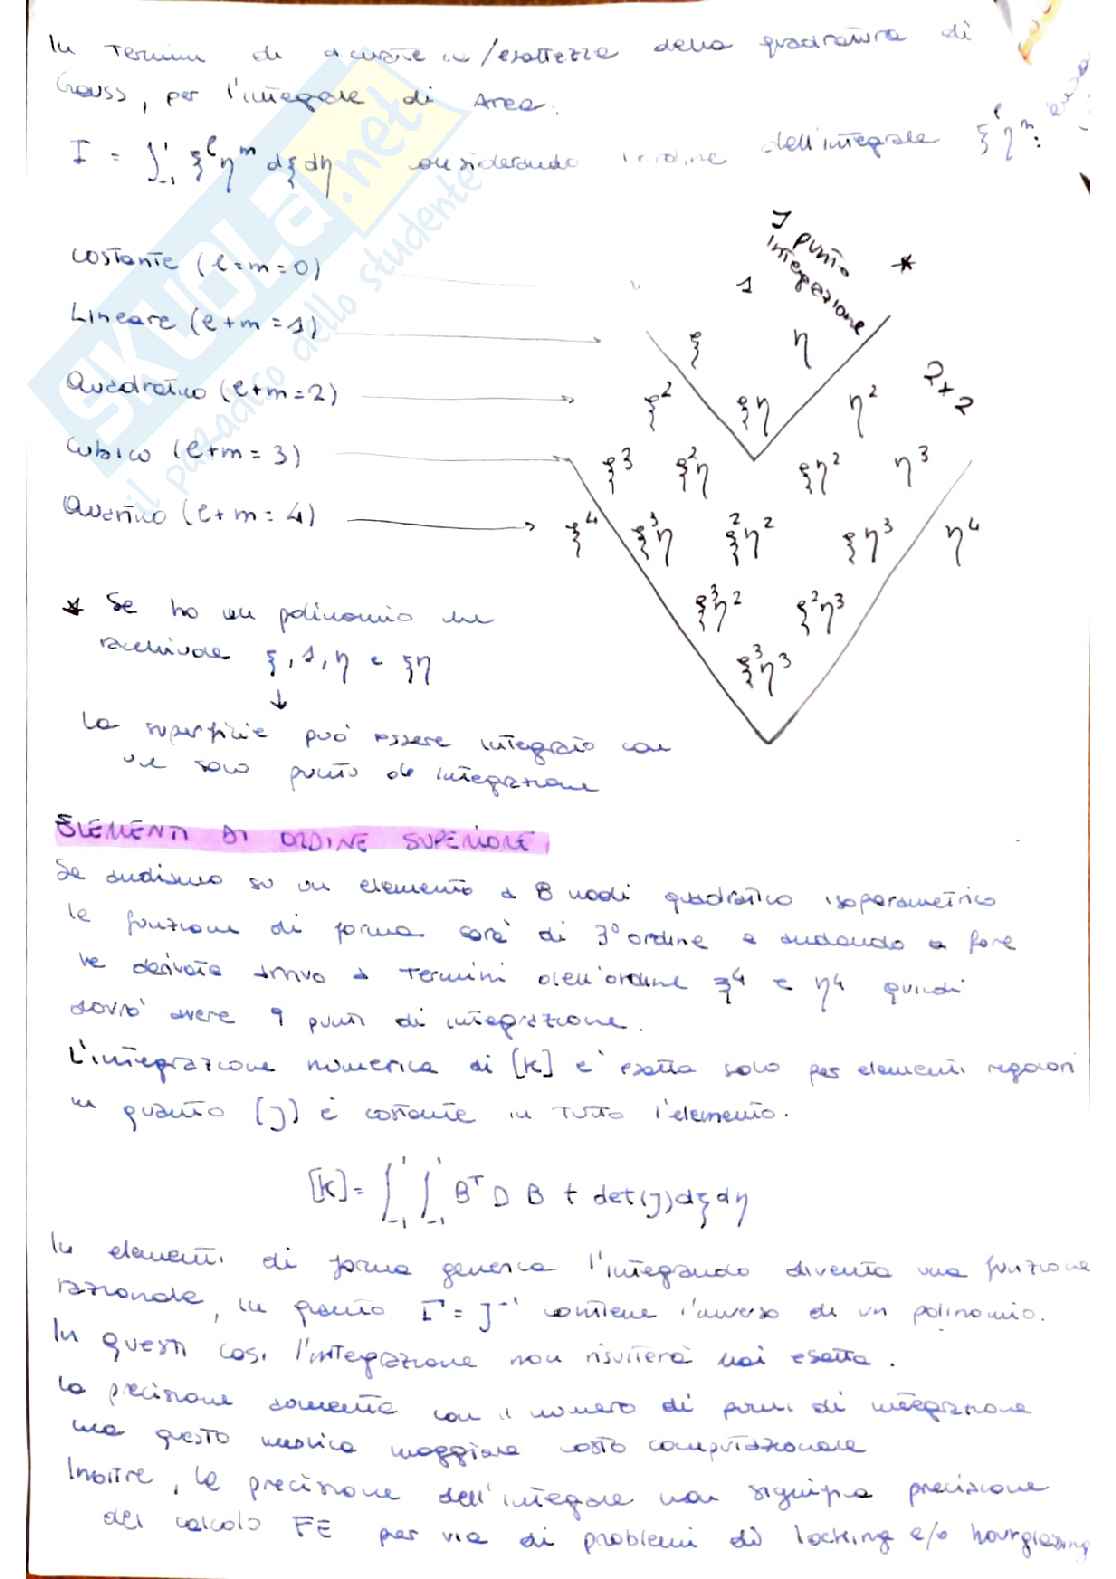 In termini di accuratezza/esattezza della quadratura di
Gauss, per l'integrale di Area.
I = ∫₋₁¹ ξ^l η^m dξ dη considerando l'ordine dell'integrale ξ^l η^m:
costante (l=m=0)
1
1 punto
integrazione
*
Lineare (l+m=1)
ξ η
Quadratico (l+m=2)
ξ² ξη η²
2x2
Cubico (l+m=3)
ξ³ ξ²η ξη² η³
Quartico (l+m=4)
ξ⁴ ξ³η ξ²η² ξη³ η⁴
ξ³η² ξ²η³
ξ³η³
* Se ho un polinomio che
racchiude ξ, 1, η e ξη
↓
La superficie può essere integrata con
un solo punto di integrazione
ELEMENTI DI ORDINE SUPERIORE
Se andiamo su un elemento a 8 nodi quadratico isoparametrico
la funzione di forma sarà di 3° ordine e andando a fare
le derivate arrivo a termini dell'ordine ξ⁴ e η⁴ quindi
dovrò avere 9 punti di integrazione.
L'integrazione numerica di [K] è esatta solo per elementi regolari
in quanto [J] è costante in tutto l'elemento.
[K] = ∫₋₁¹ ∫₋₁¹ B^T D B t det(J) dξ dη
In elementi di forma generica l'integrando diventa una funzione
razionale, in quanto Γ = J⁻¹ contiene l'inverso di un polinomio.
In questi casi l'integrazione non risulterà mai esatta.
La precisione aumenta con il numero di punti di integrazione
ma questo implica maggiore costo computazionale
Inoltre, la precisione dell'integrale non significa precisione
del calcolo FE per via di problemi di locking e/o hourglassing
SKUOLA.net
il paradiso dello studente